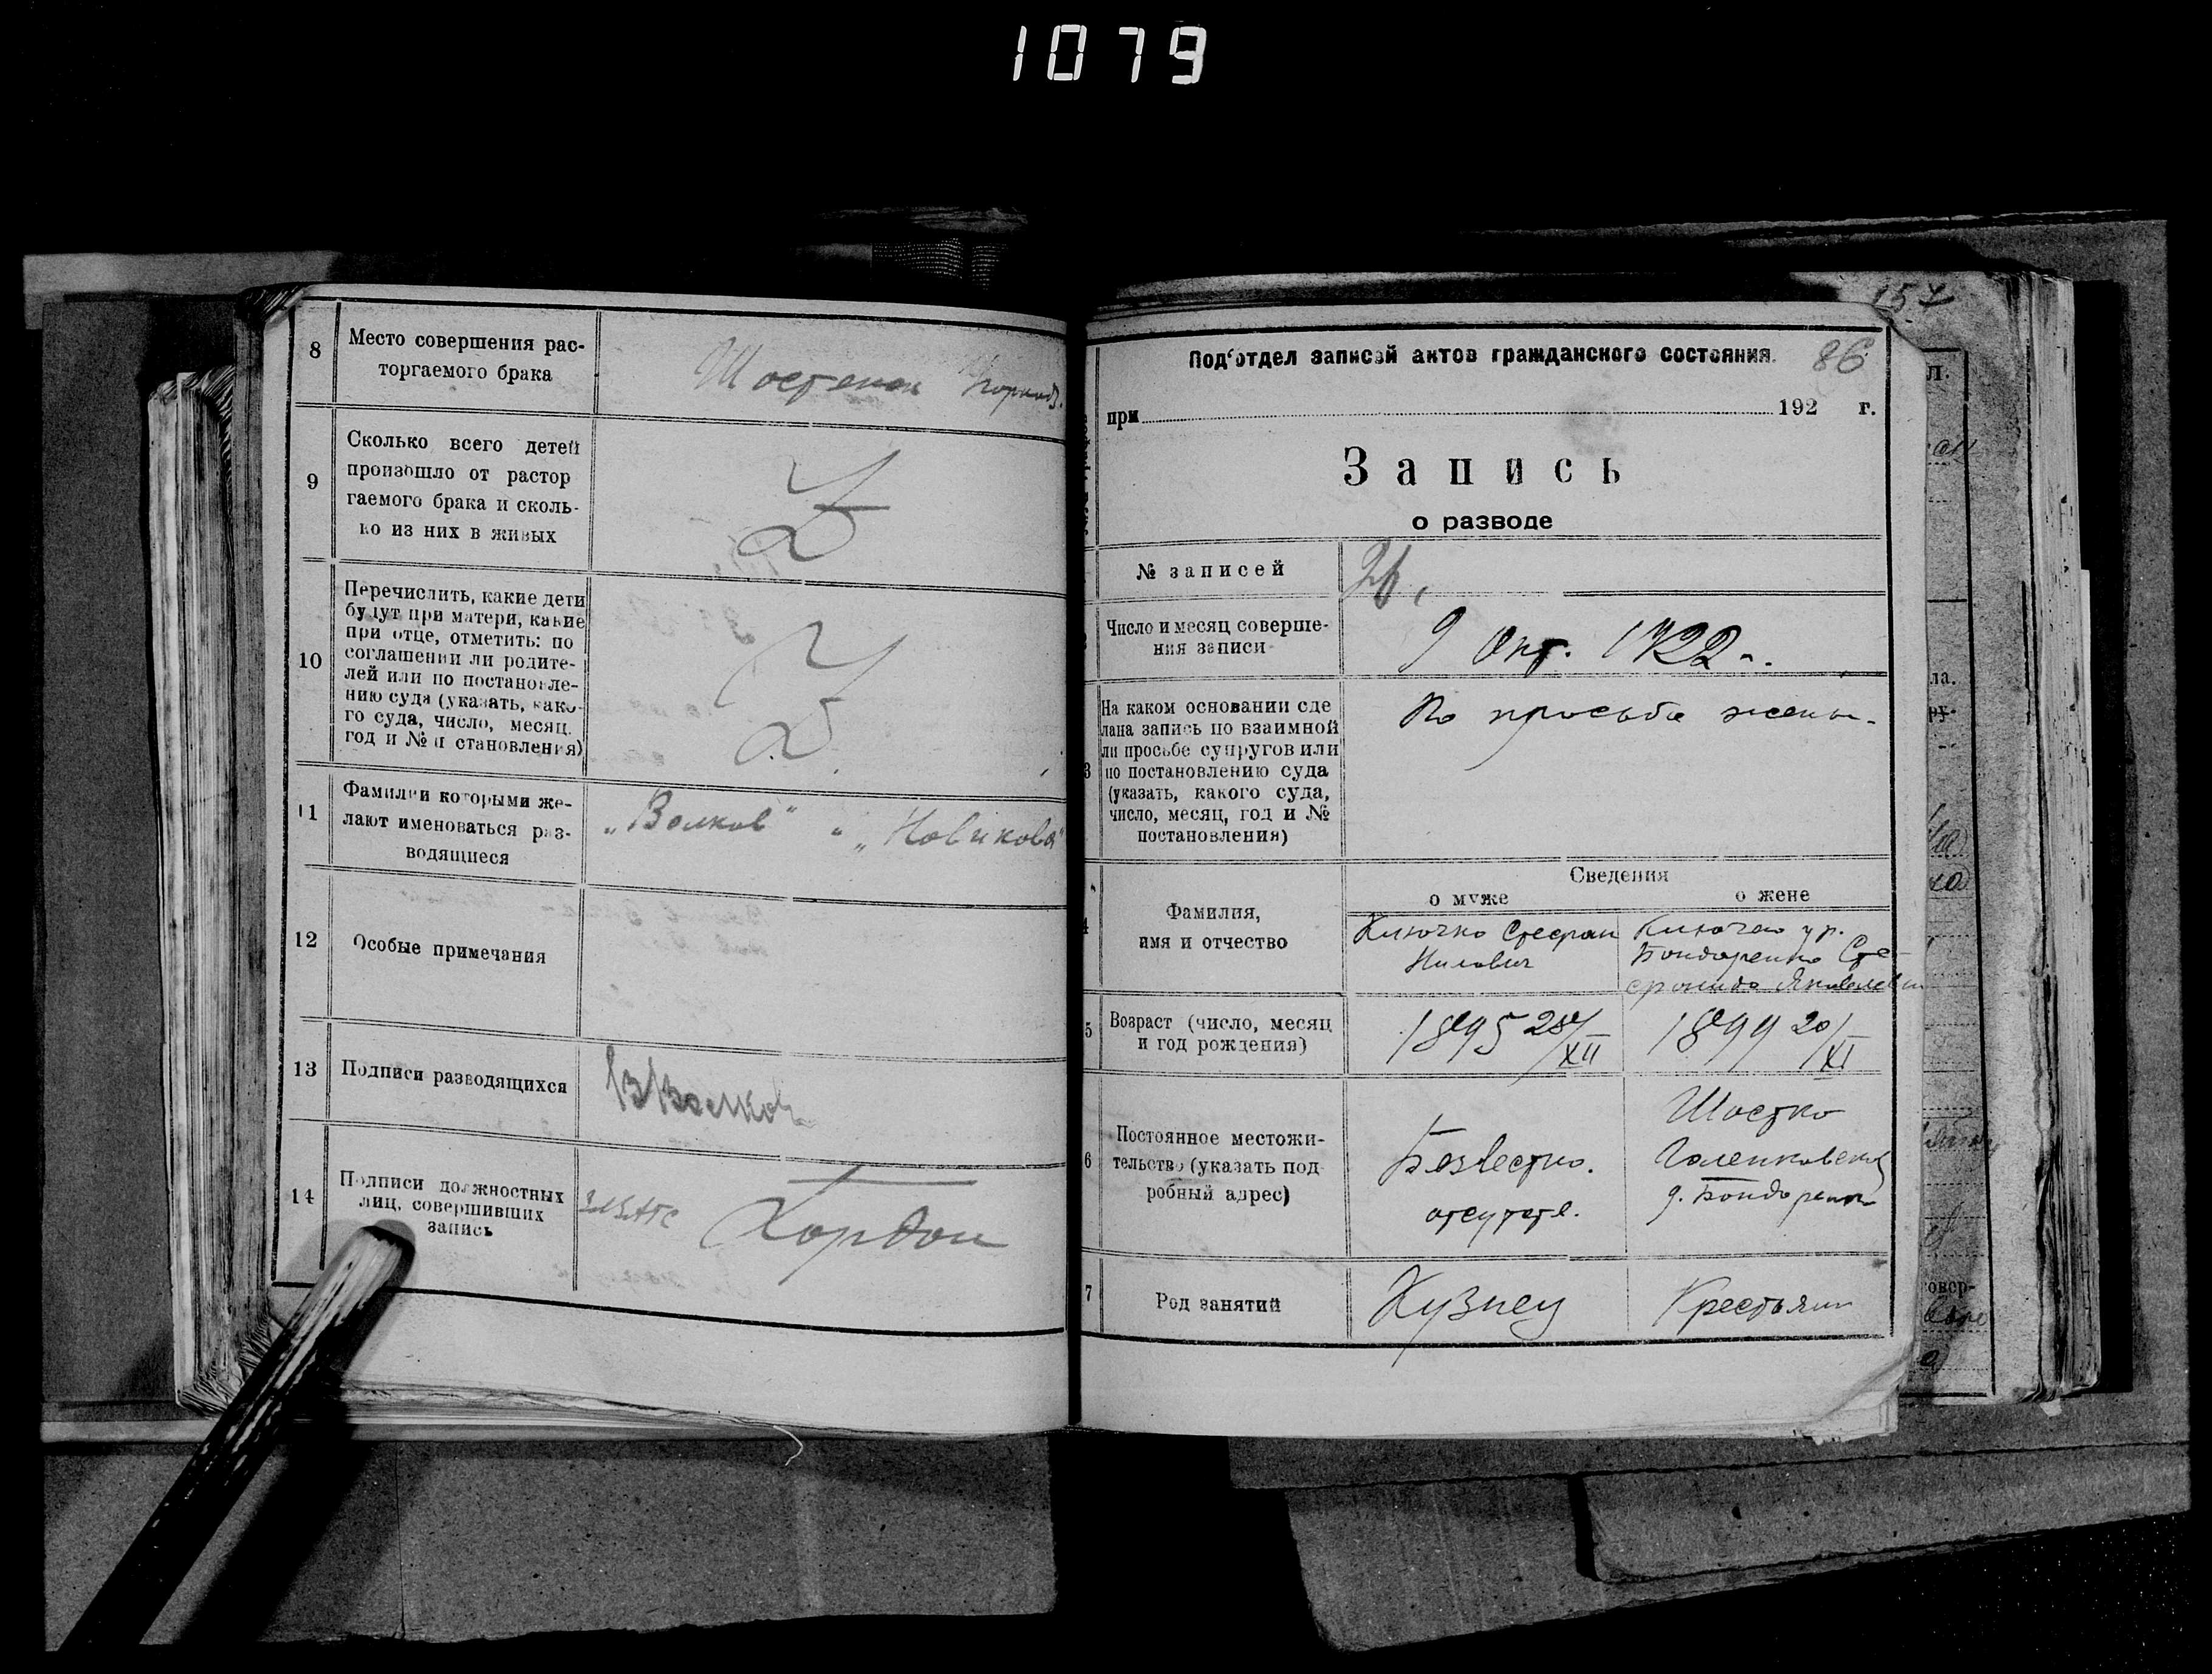 1079
8
Место совершения рас-
торгаемого брака
Шостенск
9
Сколько всего детей
произошло от растор
гаемого брака и сколь-
ко из них в живых
10
Перечислить, какие дети
будут при матери, какие
при отце, отметить: по
соглашении ли родите-
лей или по постановле-
нию суда (указать, како-
го суда, число, месяц,
год и № п становления)
11
Фамилии которыми же-
лают именоваться раз-
водящиеся
„Волков" „Новикова"
12
Особые примечания
13
Подписи разводящихся
В Волков
14
Подписи должностных
лиц, совершивших
запись
ЗАВЗАГС
157
Под'отдел записей актов гражданского состояния.
86
при 192 г.
Запись
о разводе
№ записей
Число и месяц соверше-
ния записи
9 Окт. 1922 г.
3
На каком основании сде
лана запись по взаимной
ли просьбе супругов или
по постановлению суда
(указать, какого суда,
число, месяц, год и №
постановления)
По просьбе жены.
Сведения
о муже
о жене
4
Фамилия,
имя и отчество
Ключко Стефан
Нилович
Клочко ур.
Бондаренко Сте-
фонида Яковлевн
5
Возраст (число, месяц
и год рождения)
1895 28/XII
1899 20/XI
6
Постоянное местожи-
тельство (указать под
робный адрес)
Безвестно.
отсутств.
Шостко
д. Бондаренко
7
Род занятий
Кузнец
Крестьян